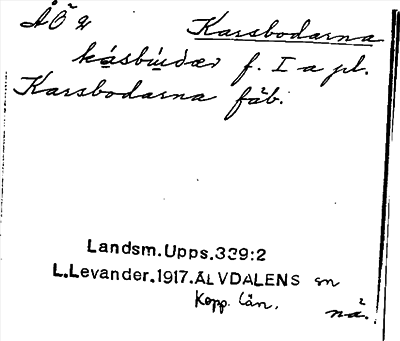 ÅÖ 2 Karsbodarna
kásbúðær f. I a pl.
Karsbodarna fäb.
Landsm.Upps.339:2
L.Levander.1917.ÄLVDALENS sn
Kopp. län.